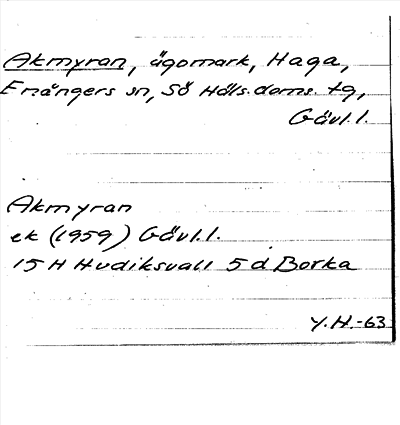 Akmyran, ägomark, Haga,
Enångers sn, Sö Häls. doms. tg,
Gävl.l.
Akmyran
ek (1959) Gävl.l.
15 H Hudiksvall 5 d Borka
Y.H.-63